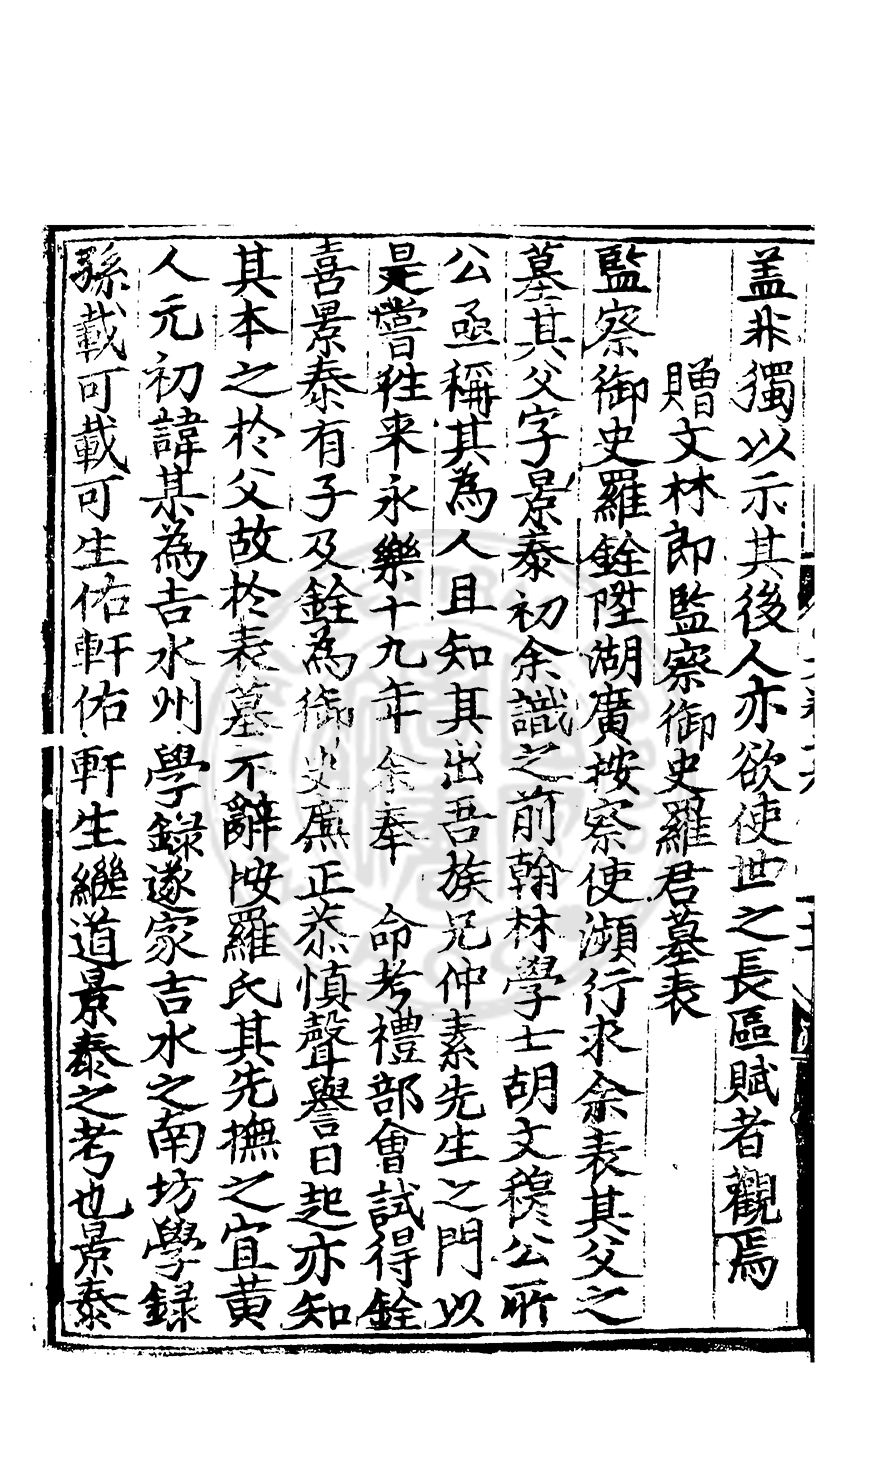 盖非獨以示其後人亦欲使世之長區賦者觀焉
贈文林郎監察御史羅君墓表
監察御史羅銓陞湖廣按察使瀕行求余表其父之
墓其父字景泰初余識之前翰林學士胡文穆公所
公亟稱其為人且知其出吾族兄仲素先生之門以
是嘗徃来永樂十九年余奉 命考禮部會試得銓
喜景泰有子及銓為御史廉正恭慎聲譽日起亦知
其本之於父故於表墓不辭按羅氏其先撫之宜黄
人元初諱某為吉水州學録遂家吉水之南坊學録
孫載可載可生佑軒佑軒生繼道景泰之考也景泰